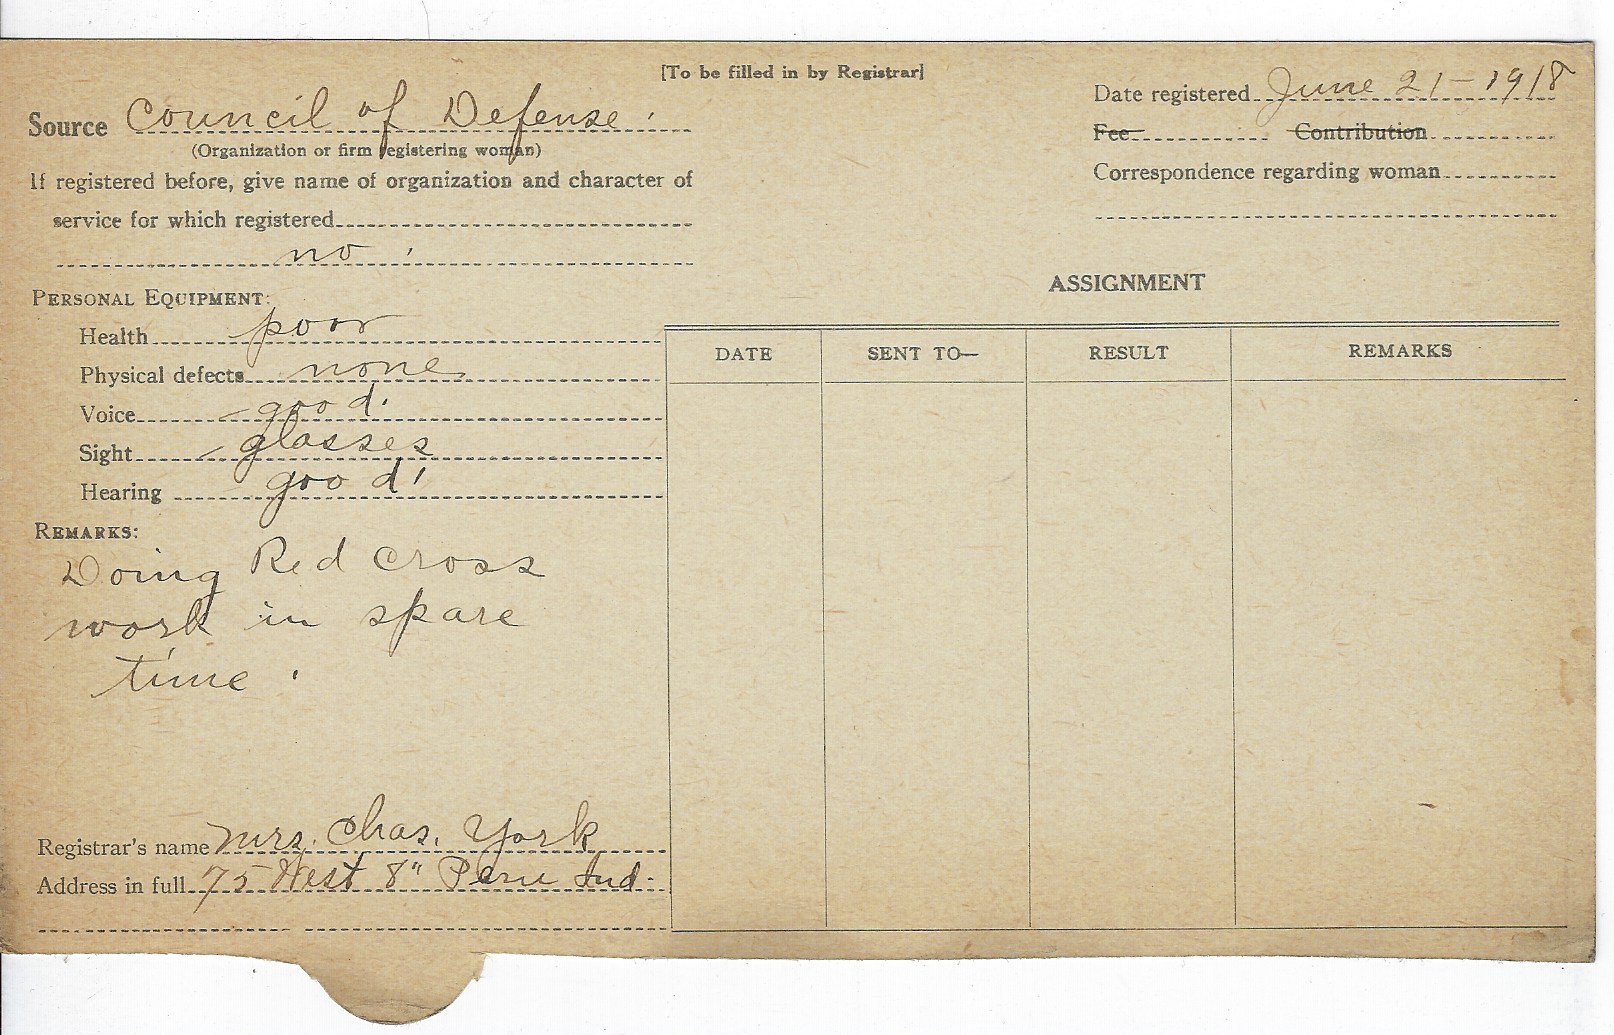 [To be filled in by Registrar]
Source Council of Defense.
(Organization or firm registering woman)
If registered before, give name of organization and character of
service for which registered
no.
Date registered June 21-1918
Fee Contribution
Correspondence regarding woman
PERSONAL EQUIPMENT:
Health poor
Physical defects none
Voice good.
Sight glasses
Hearing good.
REMARKS:
Doing Red Cross
work in spare
time.
Registrar's name Mrs. Chas. York
Address in full 75 West 8" Peru Ind.
ASSIGNMENT
DATE SENT TO— RESULT REMARKS